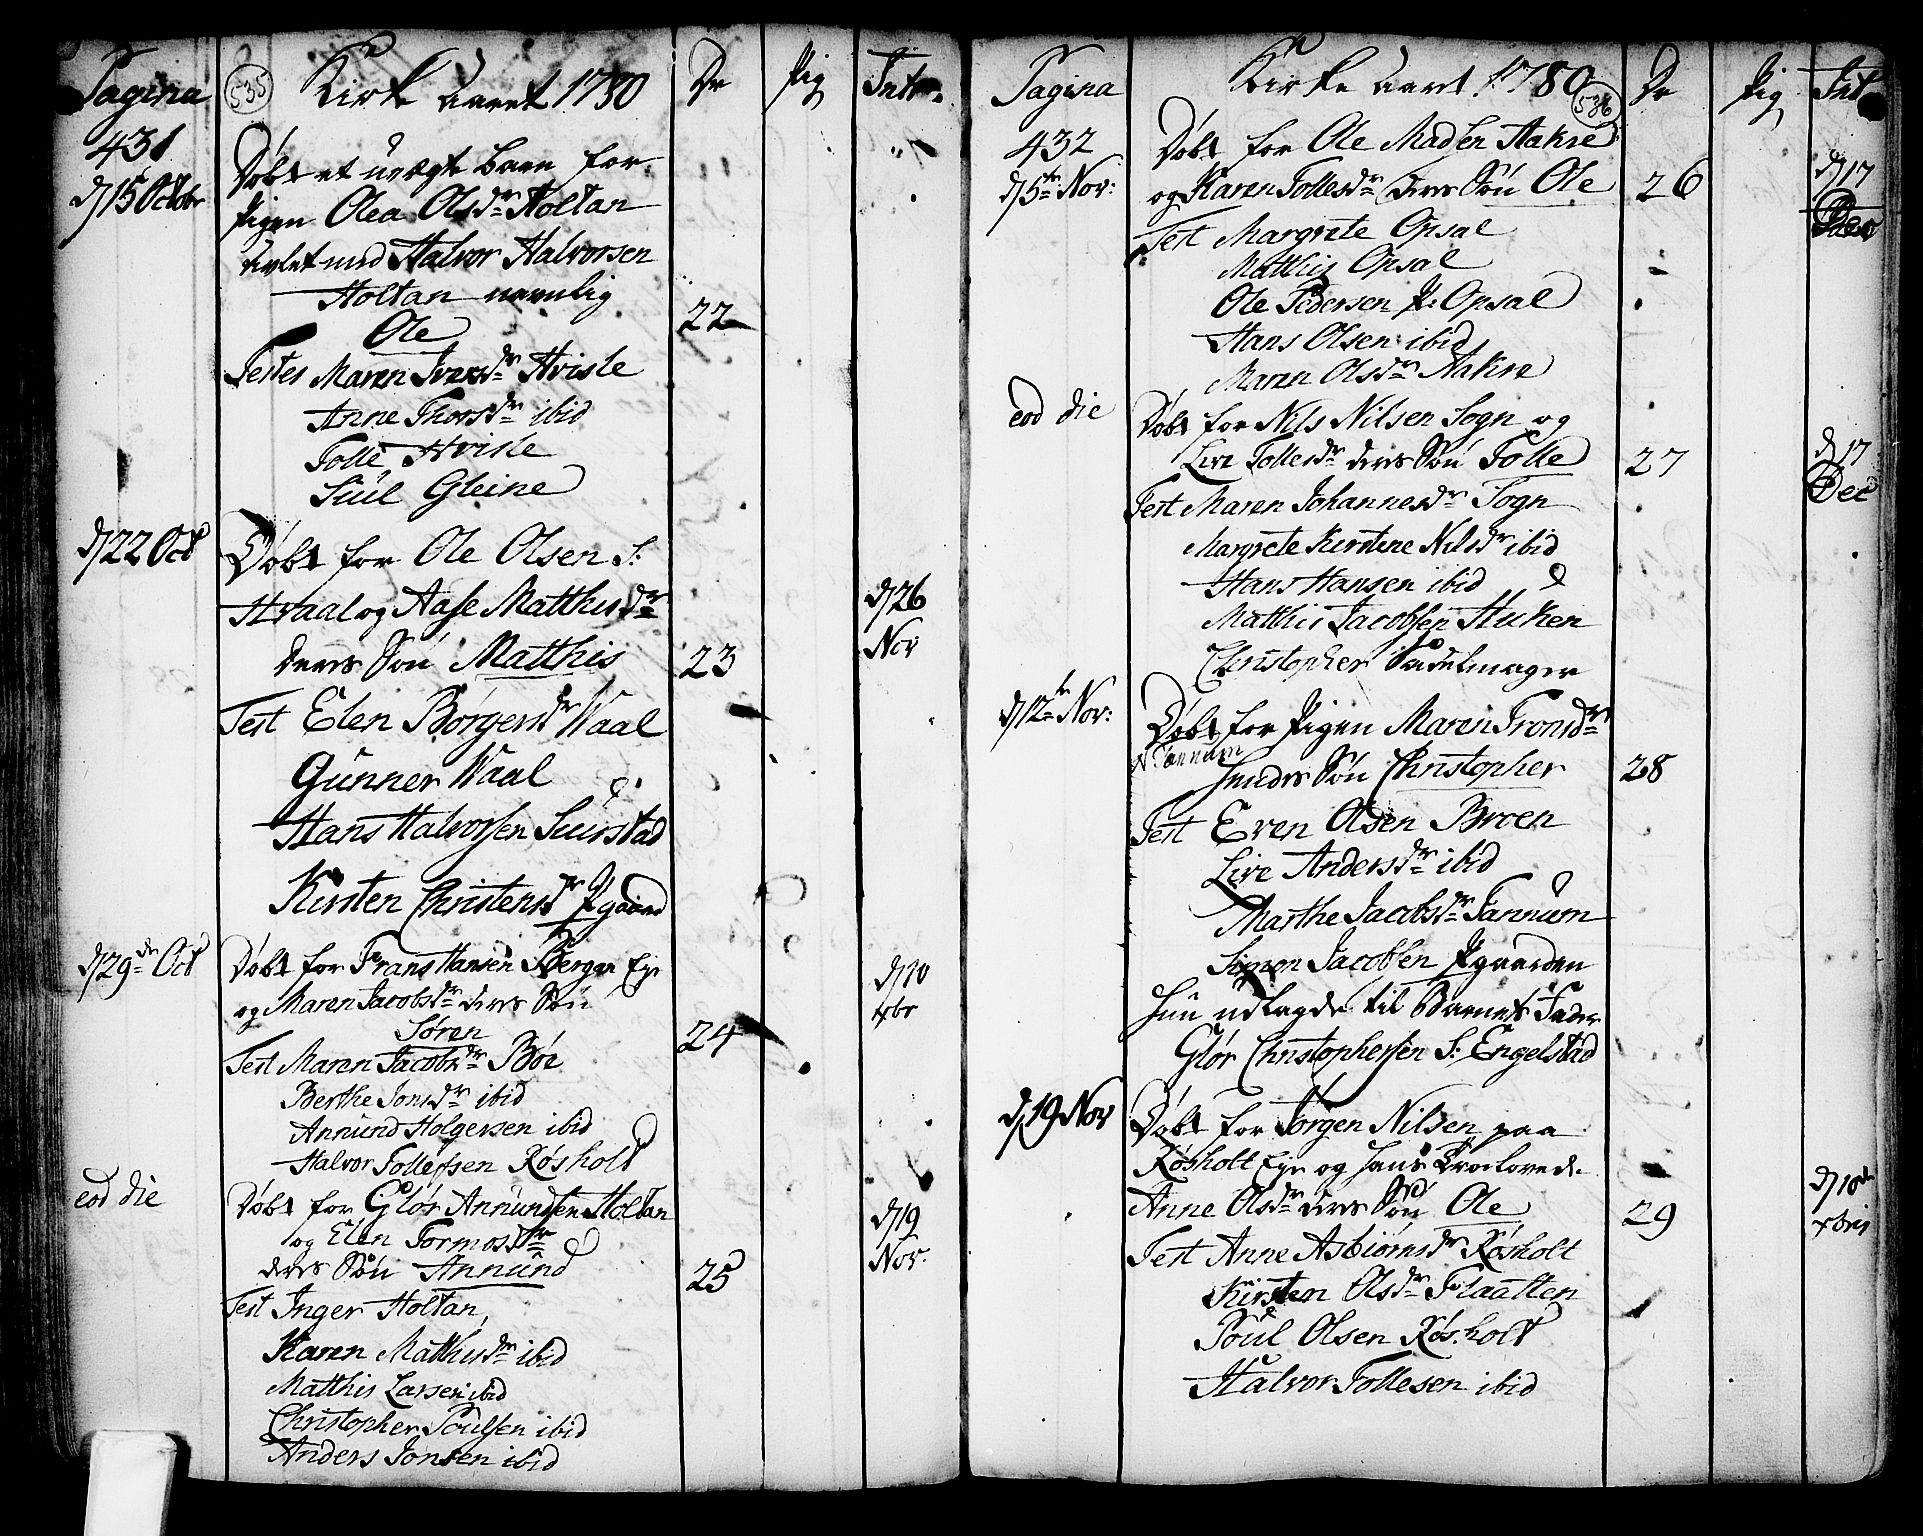 Pagina 535 Kirke Aaret 1780 Dr Pig Intr.
431
d 15 Octobr Døbt et uægte Barn for
Pigen Olea Olsdr Holtan
avlet med Halvor Halvorsen
Holtan navnlig
Ole 22
Testes Maren Iversdr Hvisle
Anne Thorsdr ibid
Tolle Hvisle
Juul Gleine
d 22 Oct Døbt for Ole Olsen S:
Hvaal og Aase Matthisdr d 26
deres Søn Matthis 23 Nov
Test Elen Børgersdr Waal
Gunner Waal
Hans Halvorsen Suustad
Kirsten Christensdr Pgaard
d 29de Oct Døbt for Frans Hansen Bergan Eje d 10
og Maren Jacobsdr deres Søn xbr
Søren 24
Test Maren Jacobsdr Bøe
Berthe Jonsdr ibid
Annund Holgersen ibid
Halvor Tollefsen Røsholt
eod die Døbt for Gloer Annundsen Holtan d 19
og Elen Tormosdr Nov.
deres Søn Annund 25
Test Inger Holtan
Karen Matthisdr ibid
Matthis Larsen ibid
Christopher Poulsen ibid
Anders Jonsen ibid
Pagina Kirke Aaret 1780 536 Dr Pig Int
432 Døbt for Ole Madsen Aakre
d 5te Nov: og Karen Tollesdr deres Søn Ole 26 d 17 Dec
Test Margrete Opsal
Matthis Opsal
Ole Pedersen P: Opsal
Hans Olsen ibid
Maren Olsdr Aakre
eod die Døbt for Nils Nilsen Sogn og
Live Tollesdr deres Søn Tolle 27 d 17 Dec
Test Maren Johannesdr Sogn
Margrete Kirstene Nilsdr ibid
Hans Hansen ibid
Matthis Jacobsen Stuken
Christopher Sadelmager
d 12te Nov: Døbt for Pigen Maren Tronsdr
N Tannum
hendes Søn Christopher 28
Test Even Olsen Broen
Live Andersdr ibid
Marthe Jacobsdr Tannum
Simon Jacobsen Pgaarden
Hun udlagde til Barnets Fader
Glør Christophersen S: Engelstad
d 19 Nov Døbt for Jørgen Nilsen paa
Røsholt Eje og hans Trolovede
Anne Olsdr deres Søn Ole 29 d 10de xbris
Test Anne Asbiørnsdr Røsholt
Kirsten Olsdr Flaatten
Poul Olsen Røsholt
Halvor Tollesen ibid